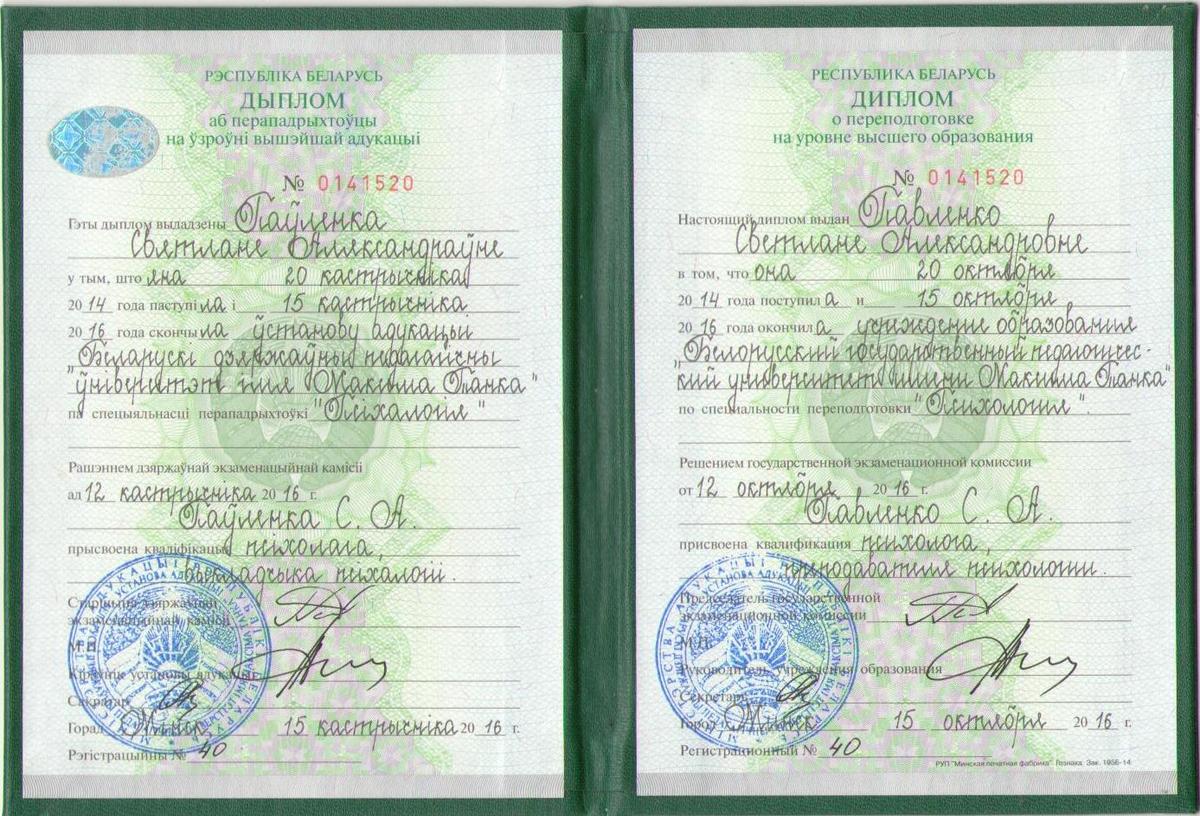 РЭСПУБЛІКА БЕЛАРУСЬ
ДЫПЛОМ
аб перападрыхтоўцы
на ўзроўні вышэйшай адукацыі
№ 0141520
Гэты дыплом выдадзены Паўленка
Святлане Аляксандраўне
у тым, што яна 20 кастрычніка
20 14 года паступіла і 15 кастрычніка
20 16 года скончыла ўстанову адукацыі
"Беларускі дзяржаўны педагагічны
ўніверсітэт імя Максіма Танка"
па спецыяльнасці перападрыхтоўкі "Псіхалогія"
Рашэннем дзяржаўнай экзаменацыйнай камісіі
ад 12 кастрычніка 20 16 г.
Паўленка С. А.
прысвоена кваліфікацыя псіхолага,
выкладчыка псіхалогіі.
Старшыня дзяржаўнай
экзаменацыйнай камісіі
М.П.
Кіраўнік установы адукацыі
Сакратар
Горад Мінск 15 кастрычніка 20 16 г.
Рэгістрацыйны № 40
РЕСПУБЛИКА БЕЛАРУСЬ
ДИПЛОМ
о переподготовке
на уровне высшего образования
№ 0141520
Настоящий диплом выдан Павленко
Светлане Александровне
в том, что она 20 октября
20 14 года поступила и 15 октября
20 16 года окончила учреждение образования
"Белорусский государственный педагогичес-
кий университет имени Максима Танка"
по специальности переподготовки "Психология".
Решением государственной экзаменационной комиссии
от 12 октября 20 16 г.
Павленко С. А.
присвоена квалификация психолога,
преподавателя психологии.
Председатель государственной
экзаменационной комиссии
М.П.
Руководитель учреждения образования
Секретарь
Город Минск 15 октября 20 16 г.
Регистрационный № 40
РУП "Минская печатная фабрика" Гознака. Зак. 1956-14.